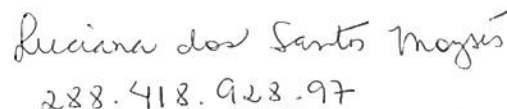 Luciana dos Santos Moysés
288.418.928.97